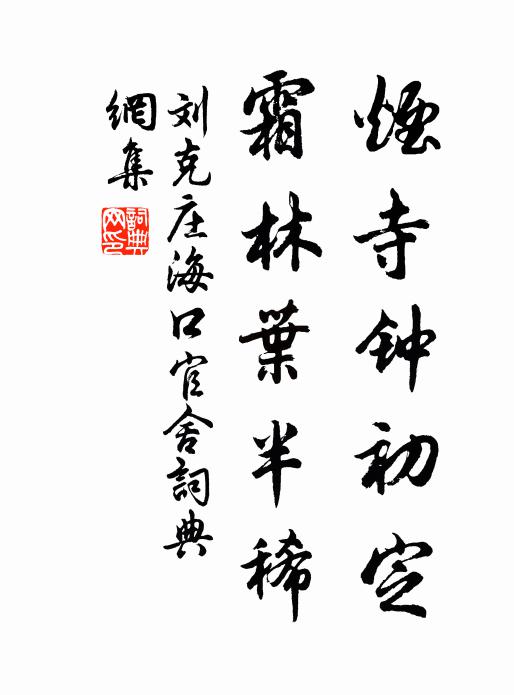 煙寺钟初定
霜林葉半稀
刘克庄海口官舍詞典
網集
詞典網印